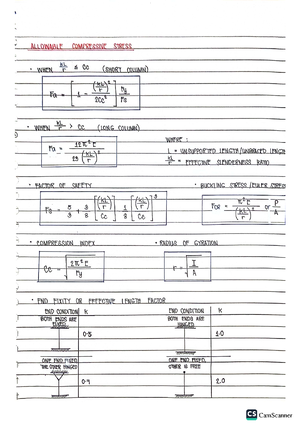 ALLOWABLE COMPRESSIVE STRESS
• WHEN KL/r ≤ Cc (SHORT COLUMN)
Fa = [1 - (KL/r)² / 2Cc²] Fy/FS
• WHEN KL/r > Cc (LONG COLUMN)
Fa = 12π²E / 23(KL/r)²
WHERE:
L = UNSUPPORTED LENGTH/UNBRACED LENGTH
KL/r = EFFECTIVE SLENDERNESS RATIO
• FACTOR OF SAFETY
• BUCKLING STRESS/EULER STRESS
FS = 5/3 + 3/8 [(KL/r) / Cc] - 1/8 [(KL/r) / Cc]³
Fcr = π²E / (KL/r)² or P/A
• COMPRESSION INDEX
• RADIUS OF GYRATION
Cc = √(2π²E / Fy)
r = √(I / A)
• END FIXITY OR EFFECTIVE LENGTH FACTOR
END CONDITION K END CONDITION K
BOTH ENDS ARE FIXED BOTH ENDS ARE HINGED
0.5 1.0
ONE END FIXED, THE OTHER HINGED ONE END FIXED, OTHER IS FREE
2.0
CS CamScanner